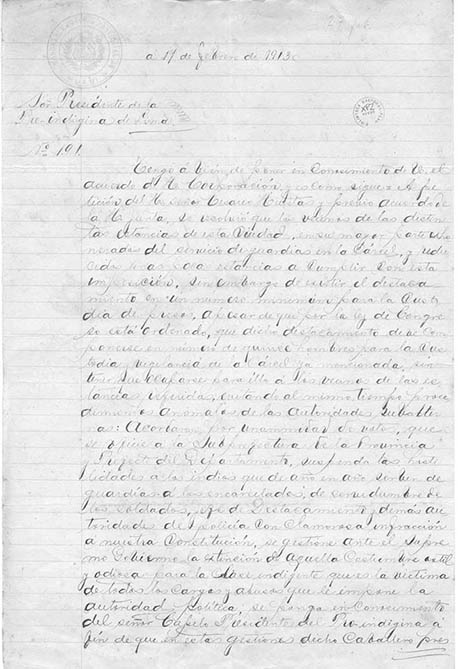 27 feb.
a 17 de febrero de 1913.
Sor. Presidente de la
Pro-indigina de Lima
No. 191.
Tengo á bien de poner en conocimiento de U. el
acuerdo d/ la Corporación, y es como sigue: A pe
tición del Señor previo acuerdo de
la Junta, se resolvió que los vecinos de las distin
tas estancias de esta Ciudad, en su mayor parte exo
nerados del servicio de guardias en la Cárcel, y redu
cidas unas pocas estancias á cumplir con esta
imposición, sin embargo de existir el destaca
mento en un número minimum para la Custo
dia de presos, apesar de que por la ley de Congre
so está ordenado, que dicho destacamento debe com
ponerse en número de quince hombres para la Cus
todia y vigilancia de la Cárcel ya mencionada, sin
tener que ocuparse para ello á los vecinos de las es
tancias referidas, evitando al mismo tiempo proce
dimientos anómalos de las autoridades subalter
nas: Acordaron por unanimidad de votos, que
se oficie á la Subprefectura de la Provincia
y Prefect. del Departamento, suspenda las hosti
lidades á los indios que de año en año sirven de
guardias á los encarcelados, de servidumbre de
los soldados, Jefe de Destacamento y demás au
toridades de policía con clamorosa infracción
á nuestra Constitución, se gestione ante el Supre
mo Gobierno la extinción de aquella costumbre
y odiosa para la clase indigente que es la víctima
de todos los cargos y abusos que le impone la
autoridad política, se ponga en conocimiento
del señor Capelo Presidente del Pro-indigina á
fin de que en estas gestiones dicho Caballero pres